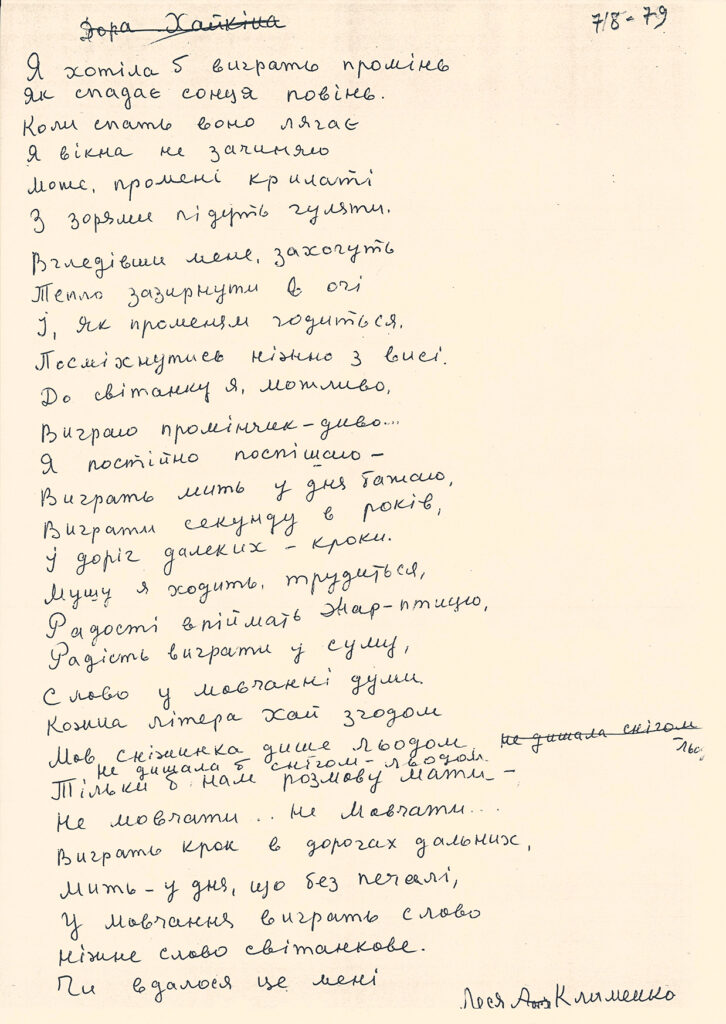 Дора Хайкіна
7/8-79
Я хотіла б виграть промінь
Як спадає сонця повінь.
Коли спать воно лягає
Я вікна не зачиняю
Може, промені крилаті
З зорями підуть гуляти.
Вгледівши мене, захочуть
Тепло зазирнути в очі
І, як променям годиться,
Посміхнутись ніжно з висі.
До світанку я, можливо,
Виграю промінчик-диво...
Я постійно поспішаю –
Виграть мить у дня бажаю,
Виграти секунду в років,
І доріг далеких – кроки.
Мушу я ходить, трудиться,
Радості впіймать Жар-птицю,
Радість виграти у суму,
Слово у мовчанні думи.
Кожна літера хай згодом
Мов сніжинка дише льодом, не дишала снігом
не дишала б снігом-льодом.
Тільки б нам розмову мати –
Не мовчати .. не мовчати...
Виграть крок в дорогах дальних,
Мить – у дня, що без печалі,
У мовчання виграть слово
Ніжне слово світанкове.
Чи вдалося це мені
Леся Клименко